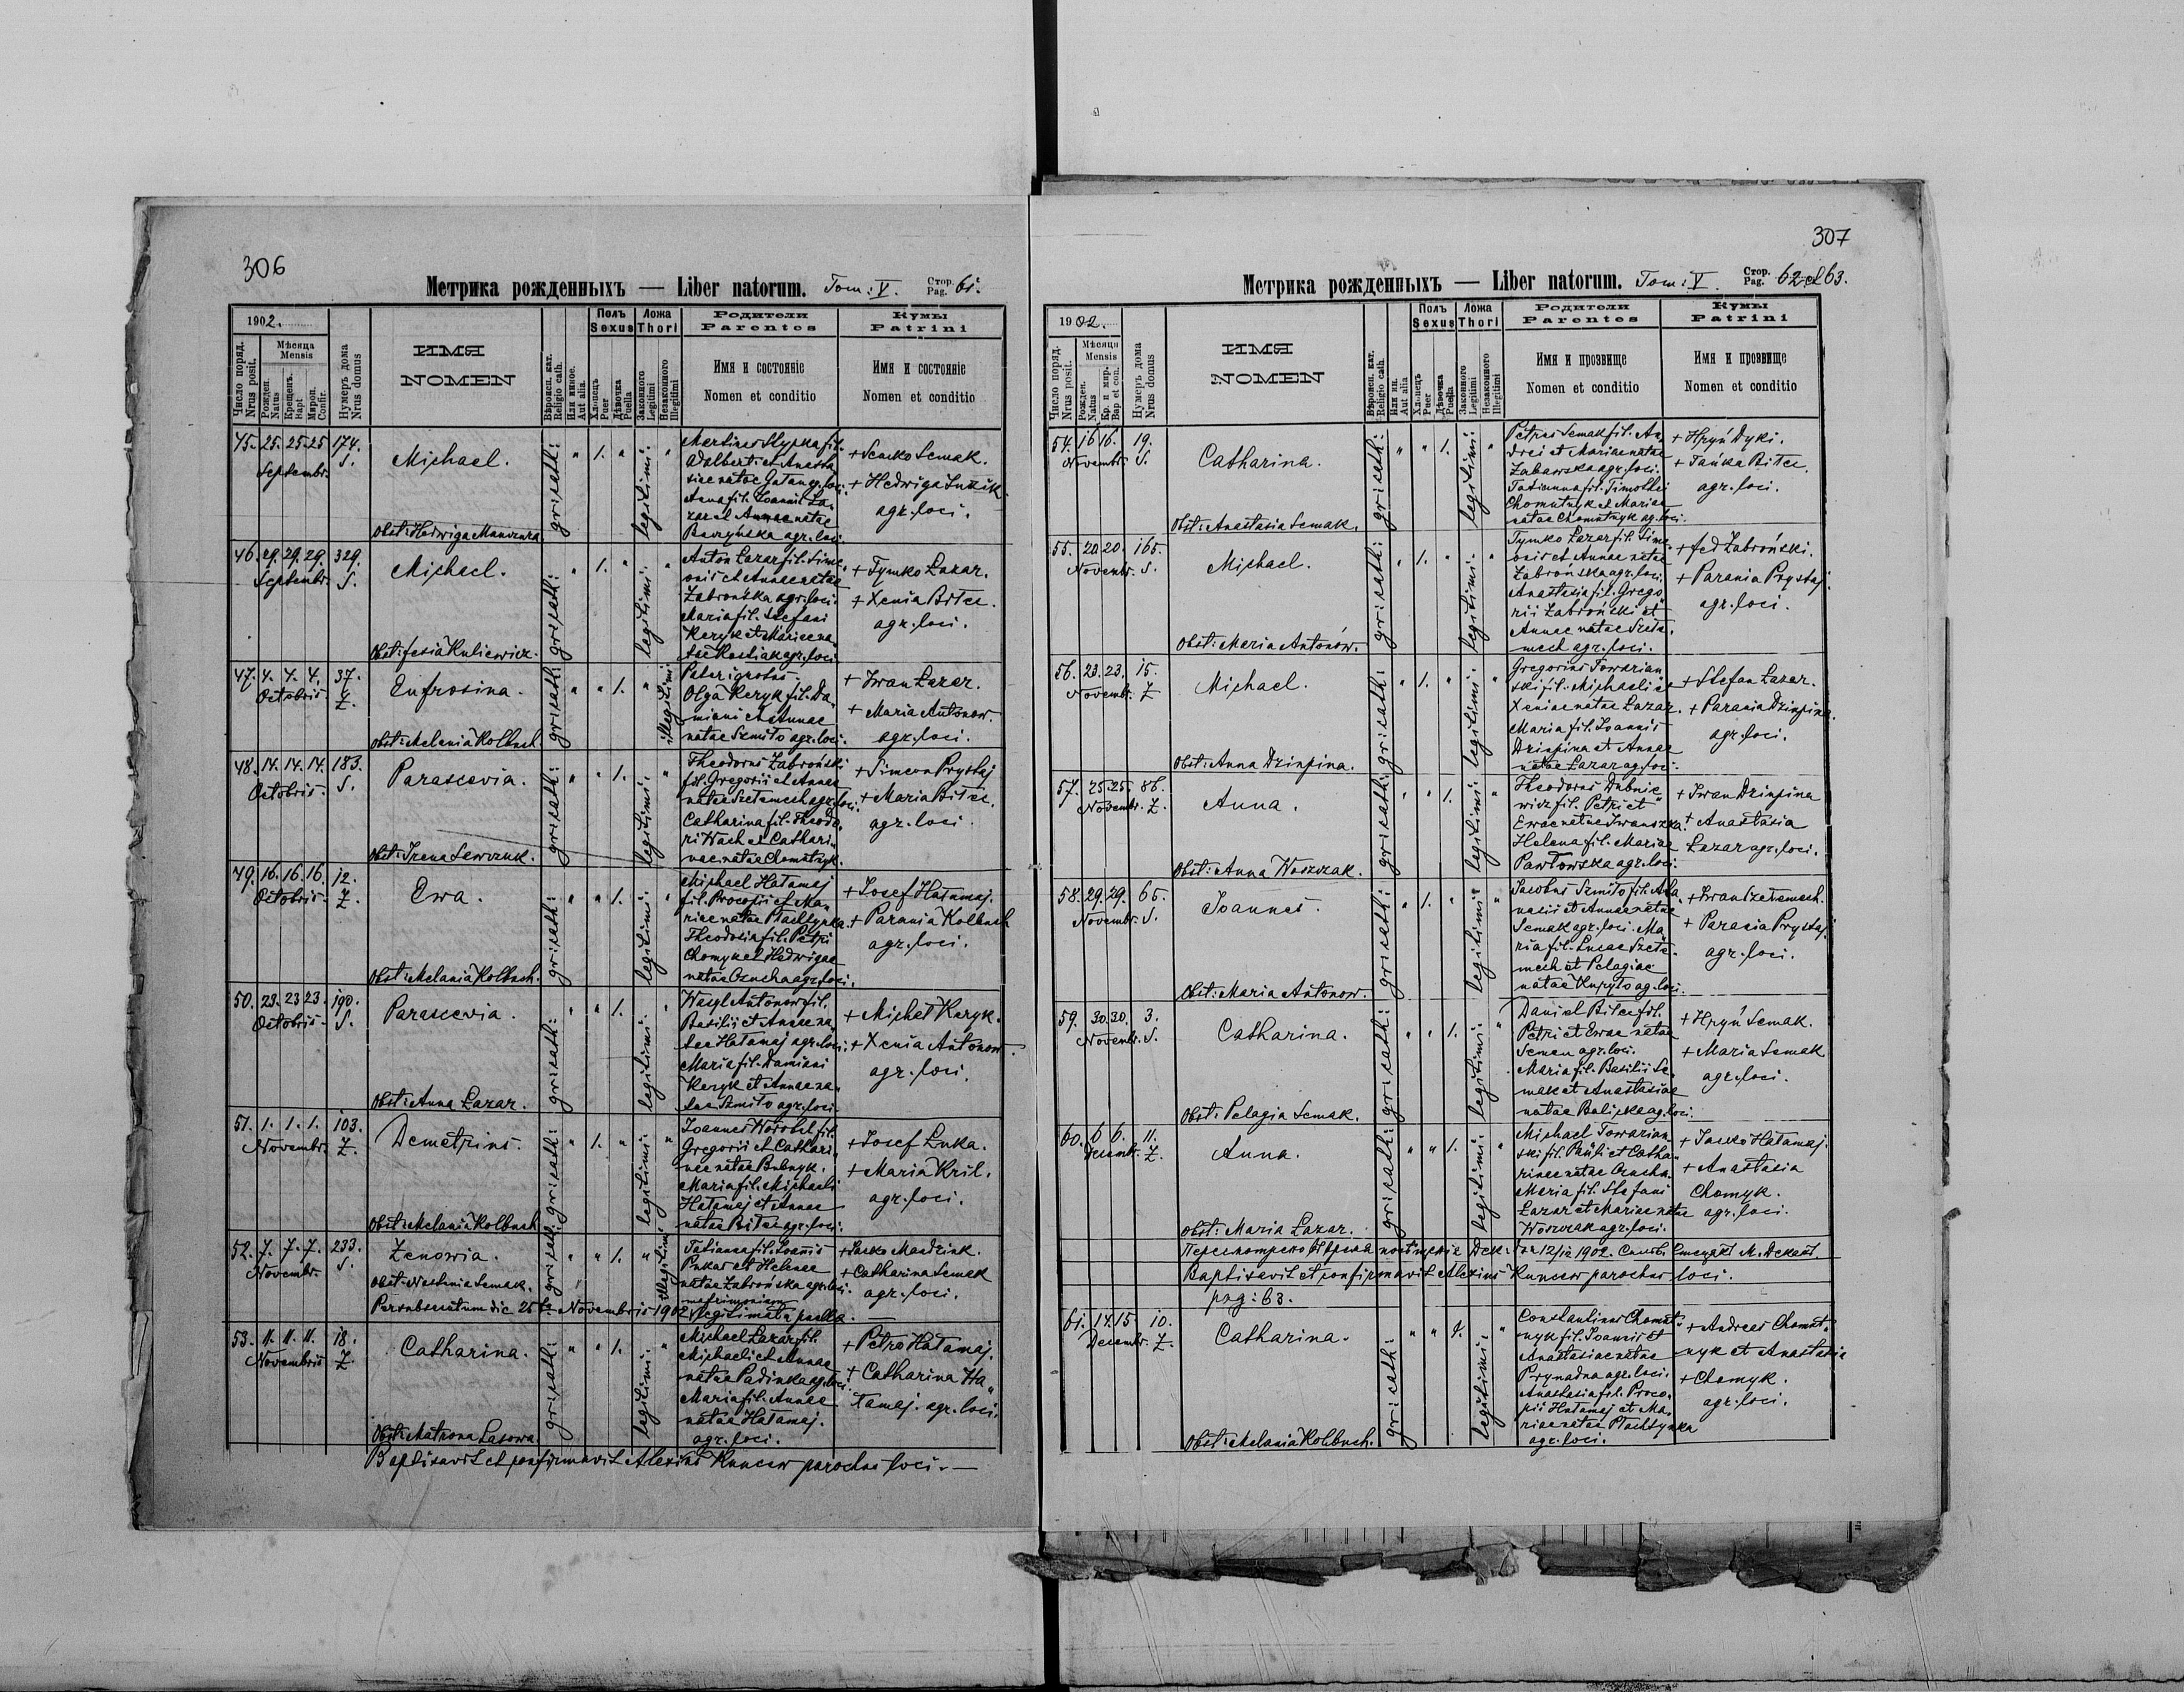 306
Метрика рожденныхъ — Liber natorum. Tom: V. Стор. Pag. 61.
1902.
Число поряд. Nrus posit.
Мѣсяца Mensis
Рожден. Natus
Крещенъ. Bapt
Миров. Confir.
Нумеръ дома Nrus domus
ИМЯ
NOMEN
Вѣроисп. кат. Religio cath.
Или инное. Aut alia.
Полъ Sexus
Хлопець Puer
Дѣвочка Puella
Ложа Thori
Законного Legitimi
Незаконного Illegitimi
Родители
Parentes
Имя и состояніе
Nomen et conditio
Кумы
Patrini
Имя и состояніе
Nomen et conditio
45. 25. 25. 25 174.
Septembr. S.
Michael.
Obst: Hedwiga
gr: cath: " 1. " legitimi: "
fil.
Adalberti et Anasta
siae natae
Anna fil. Joannis La-
zar et Annae natae
agr. loci.
+ Senko Semak.
+ Hedwiga
agr. loci.
46. 29. 29. 29. 329.
Septembr. S.
Michael.
Obst: Fesia Kuliewicz.
gr: cath: " 1. " legitimi: "
Anton Łazar fil. Sime-
onis et Annae natae
Zabrońska agr. loci.
Maria fil. Stefani
Keryk et Mariae na-
tae agr. loci.
+ Tymko Łazar.
+ Xenia Bitce.
agr. loci.
47. 4. 4. 4. 37.
Octobris. Z.
Eufrosina.
Obst: Melania Kolbuch.
gr: cath: " " 1. " illegitimi
Pater ignotus.
Olga Keryk fil. Da-
miani et Annae
natae Szmiło agr. loci.
+ Iwan Łazar.
+ Maria Antonow.
agr. loci.
48. 14. 14. 14. 183.
Octobris. S.
Parascevia.
Obst: Irena Lewczuk.
gr: cath: " " 1. legitimi: "
Theodorus Zabroński
fil. Gregorii et Annae
natae Szeremech agr. loci.
Catharina fil. Theodo-
ri Wach et Cathari-
nae natae Chomutnyk.
+ Simeon Prystaj
+ Maria Bitce.
agr. loci.
49. 16. 16. 16. 12.
Octobris. Z.
Ewa.
Obst: Melania Kolbuch.
gr: cath: " " 1. legitimi: "
Michael Hałamaj
fil. Procopii et Ma-
riae natae Płachtynka.
Theodosia fil. Petri
Chomyk et Hedwigae
natae agr. loci.
+ Josef Hałamaj.
+ Parania Kolbuch
agr. loci.
50. 23. 23 23. 190.
Octobris. S.
Parascevia.
Obst: Anna Łazar.
gr: cath: " " 1. legitimi: "
Wasyl Antonow fil.
Basilii et Annae na-
tae Hałamaj agr. loci.
Maria fil. Damiani
Keryk et Annae na-
tae Szmiło agr. loci.
+ Michał Keryk.
+ Xenia Antonow.
agr. loci.
51. 1. 1. 1. 103.
Novembr. Z.
Demetrius.
Obst: Melania Kolbuch
gr: cath: " 1. " legitimi: "
Joannes Worobel fil.
Gregorii et Cathari-
nae natae Bubnyk.
Maria fil. Michaeli
Hałamaj et Annae
natae Bitce agr. loci.
+ Josef Luka.
+ Maria Kril.
agr. loci.
52. 7. 7. 7. 233.
Novembr. S.
Zenowia.
Obst: Semak.
gr: cath: " " 1. " illegitimi
Tatianna fil. Joannis
Pukas et Helenae
natae Zabrońska agr. loci.
+ Iasko
+ Catharina Semak
agr. loci.
die 25 Novembris 1902 matrimonium legitimata puella. —
53. 11. 11. 11. 18.
Novembris Z.
Catharina.
Obst: Matrona Lasowa.
gr: cath: " " 1. legitimi: "
Michael Łazar fil.
Michaeli et Annae
natae agr. loci.
Maria fil. Annae
natae Hałamaj.
agr. loci.
+ Petro Hałamaj.
+ Catharina Ha-
łamaj. agr. loci.
Baptisavit et confirmavit Alexius Kuncew parochus loci. —
307
Метрика рожденныхъ — Liber natorum. Tom: V. Стор. Pag. 62 et 63.
1902.
Число поряд. Nrus posit.
Мѣсяця Mensis
Рожден. Natus
Кр. и мир. Bap et con.
Нумеръ дома Nrus domus
ИМЯ
NOMEN
Вѣроисп. кат. Religio cath.
Или ин. Aut alia
Полъ Sexus
Хлопець Puer
Дѣвочка Puella
Ложа Thori
Законного Legitimi
Незаконного Illegitimi
Родители
Parentes
Имя и прозвище
Nomen et conditio
Кумы
Patrini
Имя и прозвище
Nomen et conditio
54. 16 16. 19.
Novembr. S.
Catharina.
Obst: Anastasia Semak.
gr: cath: " " 1. legitimi: "
Petrus Semak fil. An-
drei et Mariae natae
Zabawska agr. loci.
Tatianna fil. Timothei
Chomutnyk et Mariae
natae Chomutnyk ag. loci.
+ Hryń Dyki.
+ Tańka Bitce.
agr. loci.
55. 20 20. 165.
Novembr. S.
Michael.
Obst: Maria Antonów.
gr: cath: " 1. " legitimi: "
Tymko Łazar fil. Sime-
onis et Annae natae
Zabrońska agr. loci.
Anastasia fil. Grego-
rii Zabroński et
Annae natae Szere-
mech agr. loci.
+ Fed Zabroński.
+ Parania Prystaj.
agr. loci.
56. 23. 23. 15.
Novembr. Z
Michael.
Obst: Anna Dziupina.
gr: cath: " 1. " legitimi: "
Gregorius Towarian-
ski fil. Michaeli et
Xeniae natae Łazar.
Maria fil. Joannis
Dziupina et Annae
natae Łazar ag. loci.
+ Stefan Łazar.
+ Parania Dziupina.
agr. loci.
57. 25. 25. 86.
Novembr. Z.
Anna.
Obst: Anna Woszczak.
gr: cath: " " 1. legitimi: "
Theodorus Dubnie-
wicz fil. Petri et
Ewae natae Iwaniszka.
Helena fil. Mariae
Pawłowska agr. loci.
+ Iwan Dziupina
+ Anastasia
Łazar agr. loci.
58. 29. 29. 65.
Novembr. S.
Joannes.
Obst: Maria Antonow.
gr: cath: " 1. " legitimi: "
Jacobus Szmiło fil. Atha-
nasii et Annae natae
Semak agr. loci. Ma-
ria fil. Lucae Szere-
mech et Pelagiae
natae Kupyło ag. loci.
+ Iwan Szeremech.
+ Parania Prystaj.
agr. loci.
59. 30. 30. 3.
Novembr. S.
Catharina.
Obst: Pelagia Semak.
gr: cath: " " 1. legitimi: "
Daniel Bitce fil.
Petri et Ewae natae
Semen agr. loci.
Maria fil. Basilii Se-
mak et Anastasiae
natae ag. loci.
+ Hryń Semak.
+ Maria Semak
agr. loci.
60. 6 6. 11.
Decembr. Z.
Anna.
Obst: Maria Łazar.
gr: cath: " " 1. legitimi: "
Michael Towarian-
ski fil. Pauli et Catha-
rinae natae
Maria fil. Stefani
Łazar et Mariae natae
Woszczak agr. loci.
+ Iasko Hałamaj.
+ Anastasia
Chomyk.
agr. loci.
12/12 1902.
Baptisavit et confirmavit Alexius Kuncew parochus loci.
pag: 63.
61. 14. 15. 10.
Decembr. Z.
Catharina.
Obst: Melania Kolbuch.
gr: cath: " " 1. legitimi: "
Constantinus Chomut-
nyk fil. Joannis et
Anastasiae natae
Prynadna agr. loci.
Anastasia fil. Proco-
pii Hałamaj et Ma-
riae natae Płachtynka
agr. loci.
+ Andreas Chomut-
nyk et Anastasia
+ Chomyk.
agr. loci.